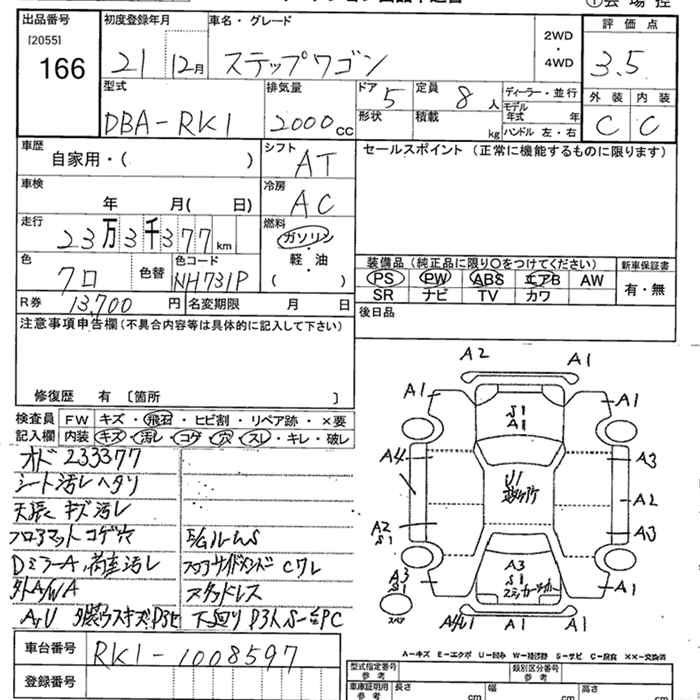 出品番号 初度登録年月 車名・グレード 2WD・4WD 評価点
[2055]
166 21 12月 ステップワゴン 3.5
型式 排気量 ドア 5 定員 8人 ディーラー・並行 外装 内装
DBA-RK1 2000cc 形状 積載 kg モデル年式 年 C C
ハンドル 左・右
車歴 自家用・( ) シフト AT セールスポイント (正常に機能するものに限ります)
車検 年 月( 日) 冷房 AC
走行 23万3千377km 燃料 ガソリン・軽・油 ( )
色 クロ 色替 色コード NH731P
装備品 (純正品に限り〇をつけてください) 新車保証書
PS PW ABS エアB AW 有・無
SR ナビ TV カワ
R券 13,700円 名変期限 月 日 後日品
注意事項申告欄 (不具合内容等は具体的に記入して下さい)
修復歴 有 〔箇所 〕
検査員 FW キズ・飛石・ヒビ割・リペア跡・×要
記入欄 内装 キズ・汚レ・コゲ・穴・スレ・キレ・破レ
オド 233377
シート汚レ ヘタリ
天張 キズ汚レ
フロアマットコゲ穴
Dミラー A
外 A/WA
スタッドレス
A2 A1
A1 S1 A1 A1
A4 U1 A3
A2 S1 A2
A3
A3 S1 A3 S1 A1
スペア A4U1 A1
A-キズ E-エクボ U-凹み W-補修跡 S-サビ C-腐食 ××-交換済
車台番号 RK1-1008597
登録番号
型式指定番号 参考 類別区分番号 参考
車庫証明用 参考 長さ cm 幅 cm 高さ cm